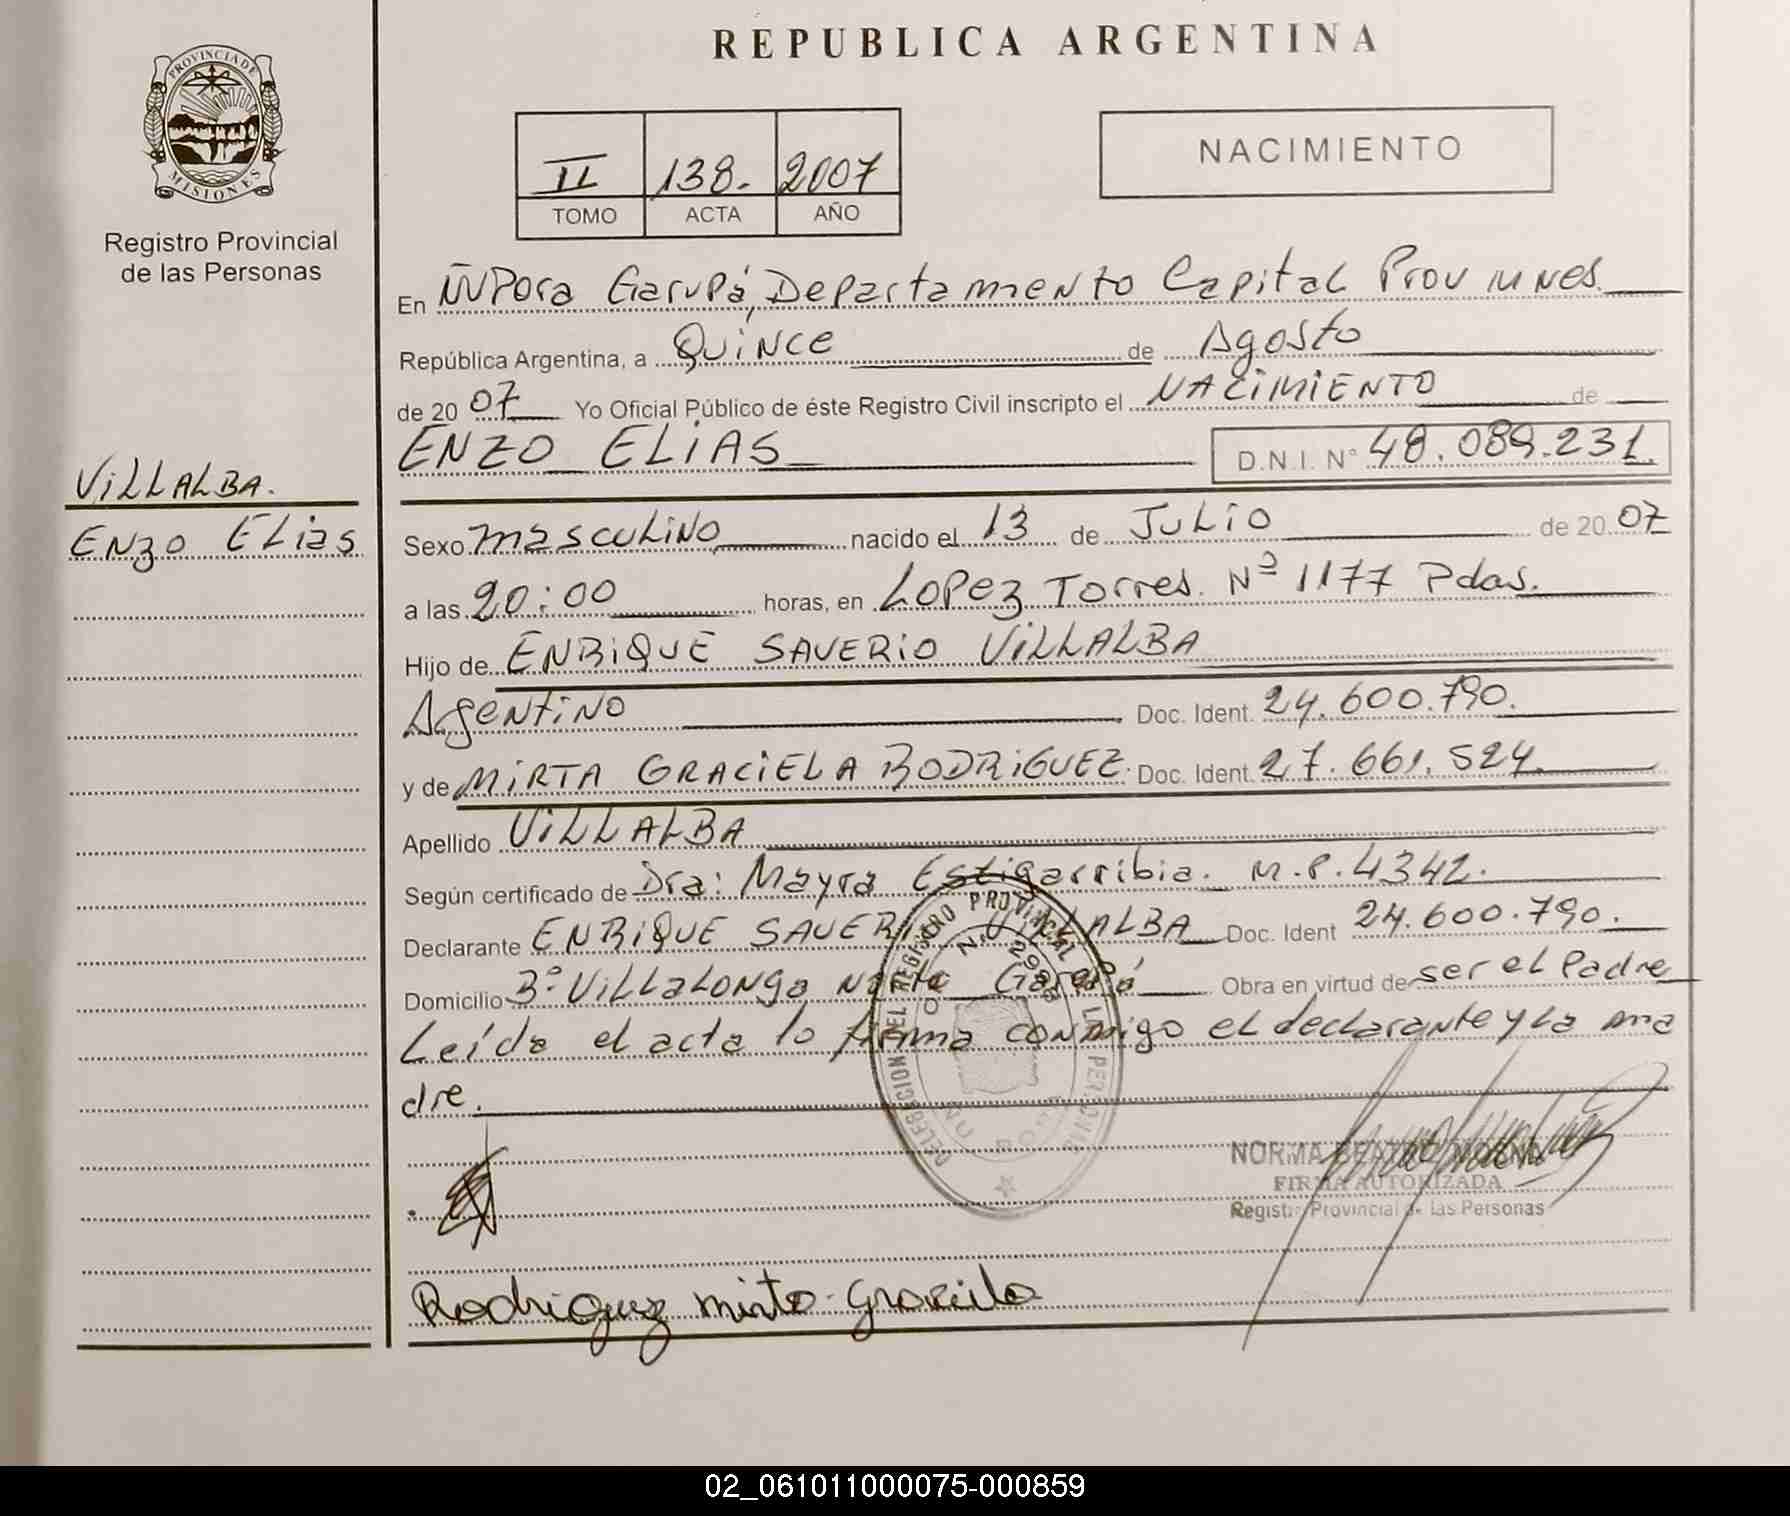 REPUBLICA ARGENTINA
PROVINCIA DE
MISIONES
Registro Provincial
de las Personas
II 138. 2007
TOMO ACTA AÑO
NACIMIENTO
En Ñu Pora Garupá, Departamento Capital Prov
República Argentina, a Quince de Agosto
de 2007 Yo Oficial Público de éste Registro Civil inscripto el NACIMIENTO de
ENZO ELIAS D.N.I. N° 48.089.231.
VILLALBA.
ENZO ELIAS
Sexo masculino nacido el 13 de JULIO de 2007
a las 20:00 horas, en LOPEZ TORRES. Nº 1177 Pdas.
Hijo de ENRIQUE SAVERIO VILLALBA
Argentino Doc. Ident. 24.600.790.
y de MIRTA GRACIELA RODRIGUEZ. Doc. Ident. 27.661.524.
Apellido VILLALBA
Según certificado de Dra: Mayra Estigarribia. M.P.4342.
Declarante ENRIQUE SAVERIO VILLALBA Doc. Ident 24.600.790.
Domicilio Bº VILLALONGA Norte Garupá Obra en virtud de ser el Padre
Leída el acta lo firma conmigo el declarante y la ma
dre.
DELEGACION DEL REGISTRO PROVINCIAL DE LAS PERSONAS
NORMA BEATRIZ
FIRMA AUTORIZADA
Registro Provincial de las Personas
Rodriguez Mirta Graciela
02_061011000075-000859